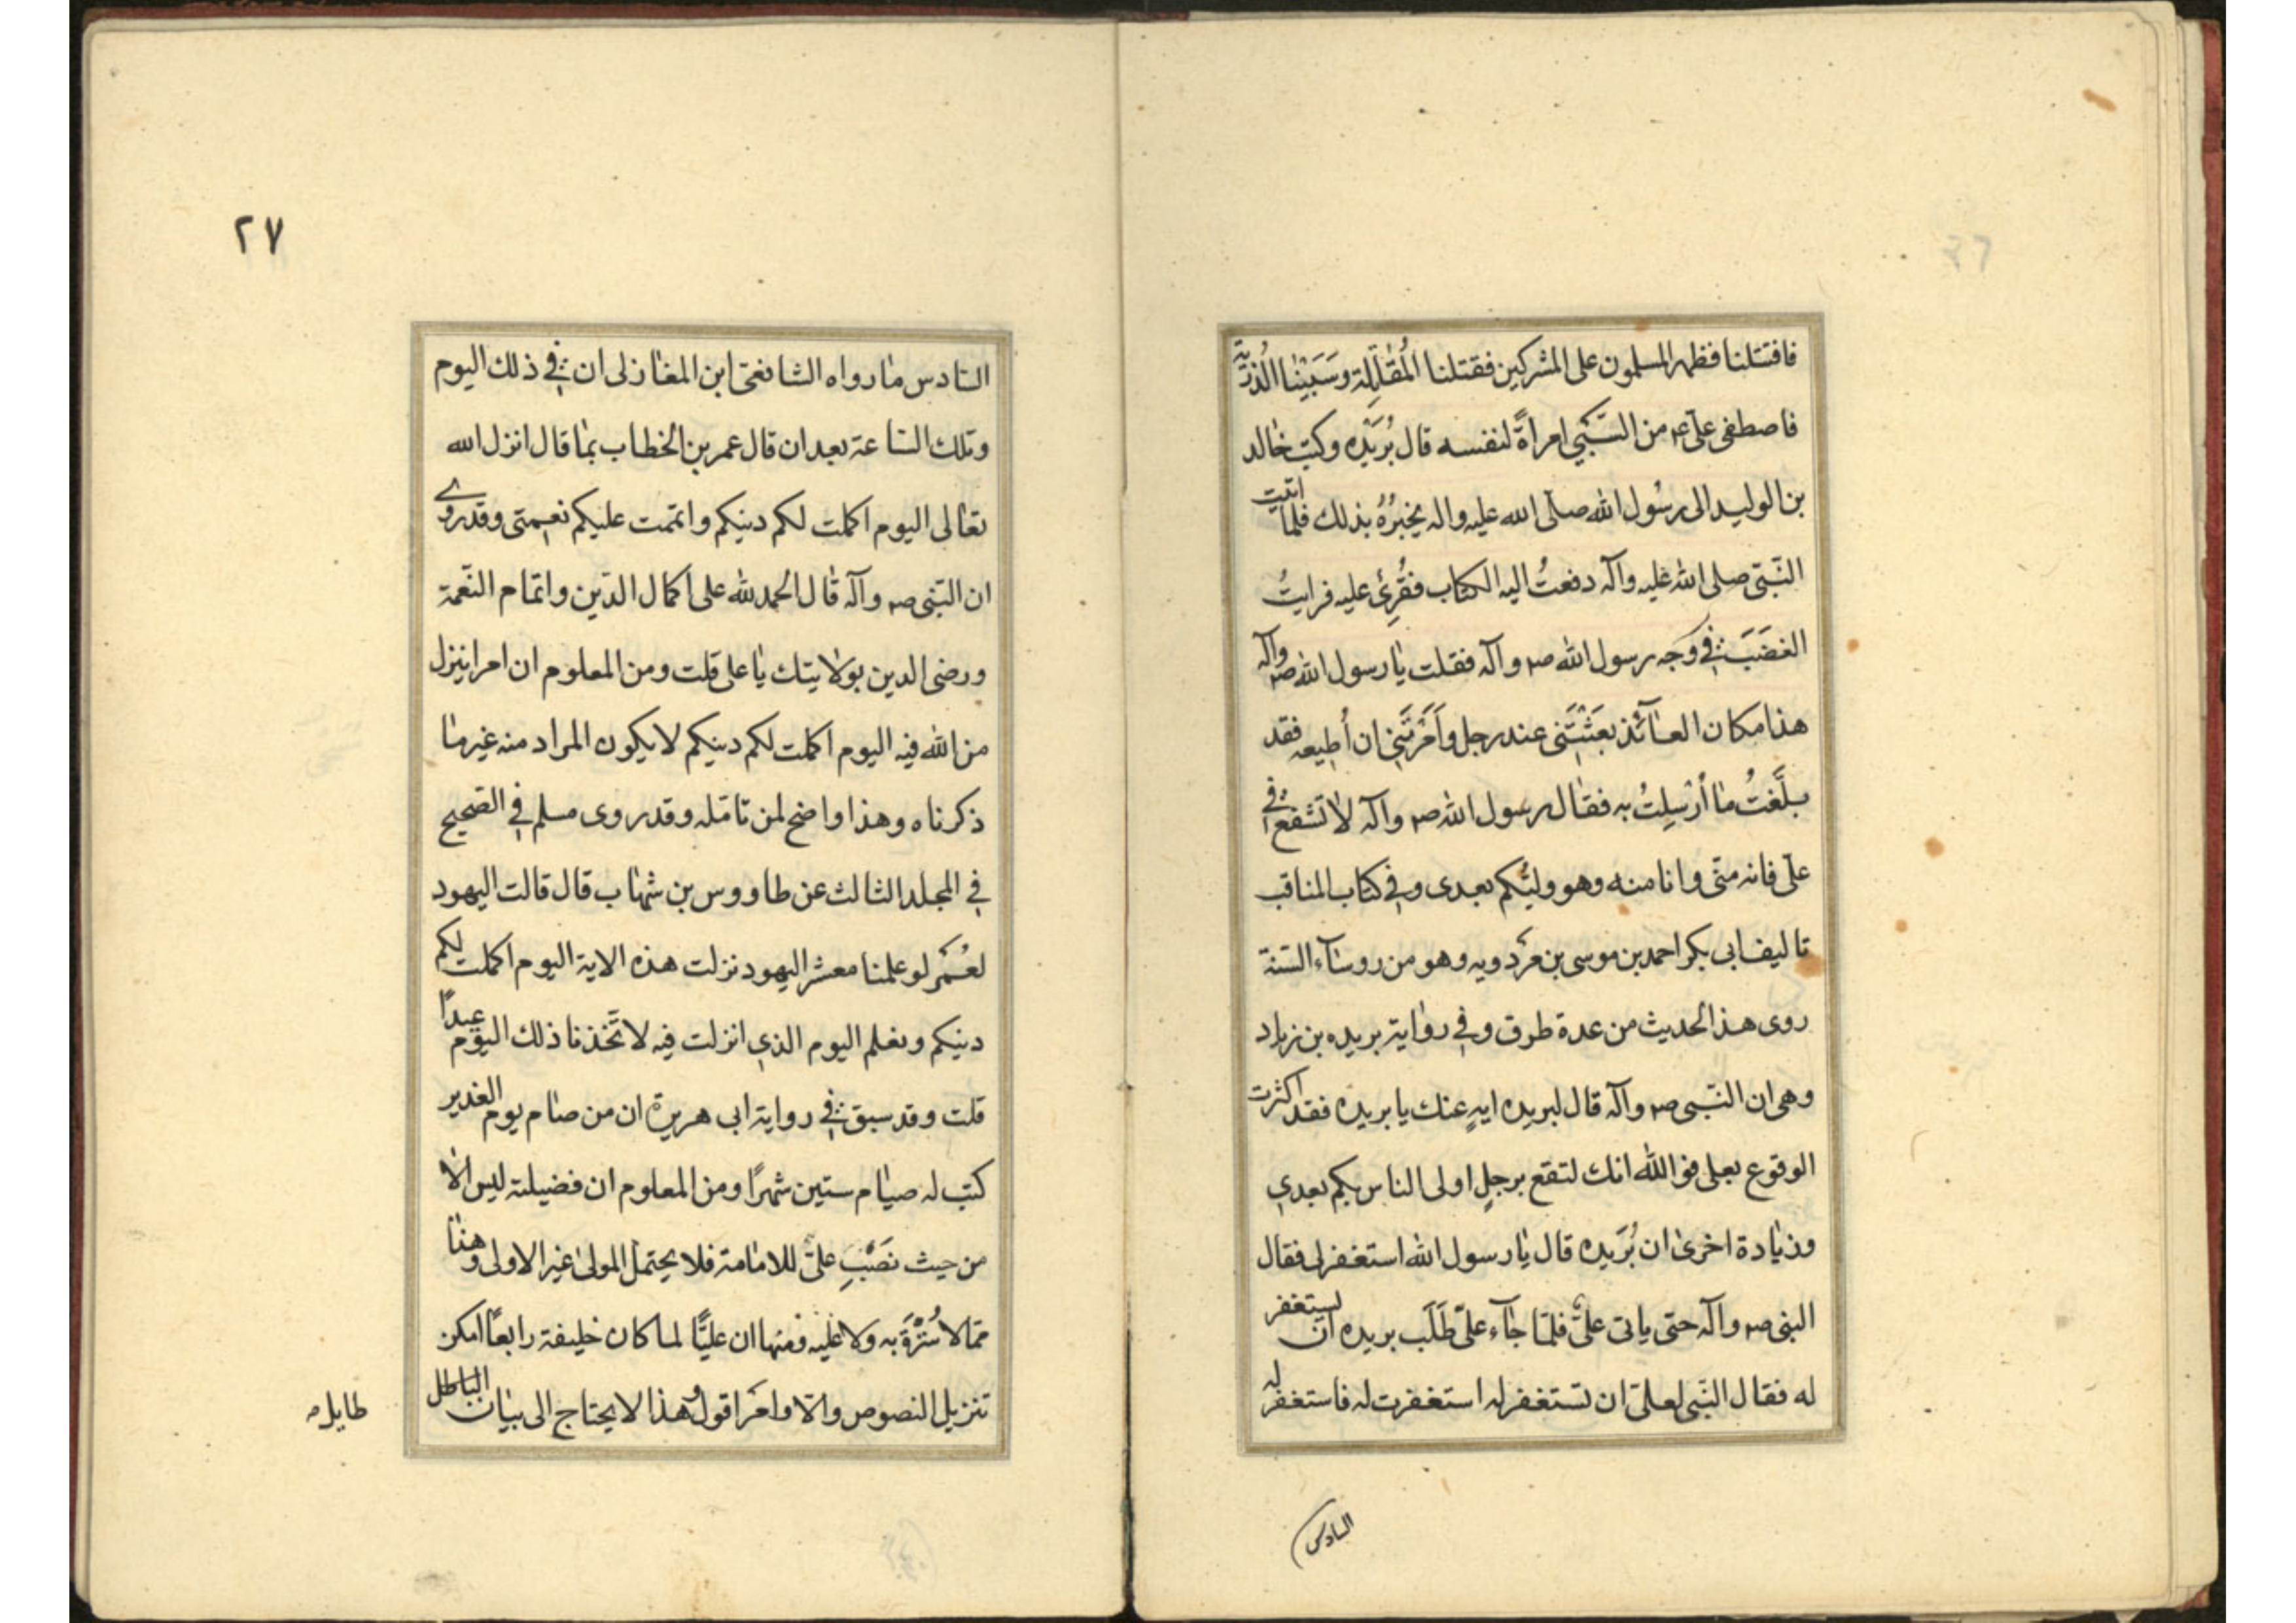 فاقتتلنا فظهر المسلمون على المشركين فقتلنا المُقاتِلة وسَبَيْنا الذريّة
فاصطفى على ع من السَّبْيِ امراةً لنفسه قال بُرَيْده وكتب خالد
بن الوليد الى رسُول الله صلّى الله عليه واله يخبرُهُ بذلك فلما اتيت
النّبىّ صلى الله عليه وآله دفعتُ اليه الكتاب فقُرِئ عليه فرايتُ
الغضَبَ فى وَجه رسول الله ص وآله فقلت يا رسول الله ص وآله
هذا مكان العائذ بَعَثْتَنى عند رجل واَمَرْتَنى ان اُطيعه فقد
بلَّغتُ ما اُرْسِلتُ به فقال رسول الله ص وآله لا تشفع فى
علّى فانه منّى وانا منه وهو وليّكم بعدى وفى كتاب المناقب
تاليف ابى بكر احمد بن موسى بن مَردويه وهو من روساء السّنة
روى هذا الحديث من عدة طرق وفى رواية بريده بن زياد
وهى ان النّبى ص وآله قال لبريده ايهٍ عنك يا بريده فقد اكثرت
الوقوع بعلى فو الله انك لتقع برجلٍ اولى الناس بكم بعدي
وزيادة اخرى ان بُرَيده قال يا رسول الله استغفر لى فقال
النبى ص وآله حتى ياتى علىّ فلمّا جآء علىّ طَلَب بريده ان يستغفر
له فقال النّبى لعلىّ ان تستغفر له استغفرت له فاستغفر له
السادس
٢٧
السّادس ما رواه الشافعى ابن المغازلى ان فى ذلك اليوم
وتلك السّاعة بعد ان قال عمر بن الخطاب بما قال انزل الله
تعالى اليوم اكملت لكم دينكم واتممت عليكم نعمتى وقد روى
ان النّبى ص وآله قال الحمد لله على اكمال الدّين واتمام النّعمة
ورضى الدين بولايتك يا على قلت ومن المعلوم ان امرا ينزل
من الله فيه اليوم اكملت لكم دينكم لا يكون المراد منه غير ما
ذكرناه وهذا واضح لمن تامّله وقد روى مسلم فى الصّحيح
فى المجلد الثالث عن طاووس بن شهاب قال قالت اليهود
لعُمَر لو علمنا معشر اليهود نزلت هذه الاية اليوم اكملت لكم
دينكم ونعلم اليوم الذي انزلت فيه لاتّخذنا ذلك اليوم عيدًا
قلت وقد سبق فى رواية ابى هريرة ان من صام يوم الغدير
كتب له صيام ستين شهرًا ومن المعلوم ان فضيلته ليس الا
من حيث نَصْبِ علىّ للامامة فلا يحتمل المولى غير الاولى وهذا
ممّا لا سُتْرَةَ به ولا عليه ومنها ان عليًّا لما كان خليفة رابعًا امكن
تنزيل النصوص والاوامر اقول وهذا لا يحتاج الى بيان الباطل
طايل